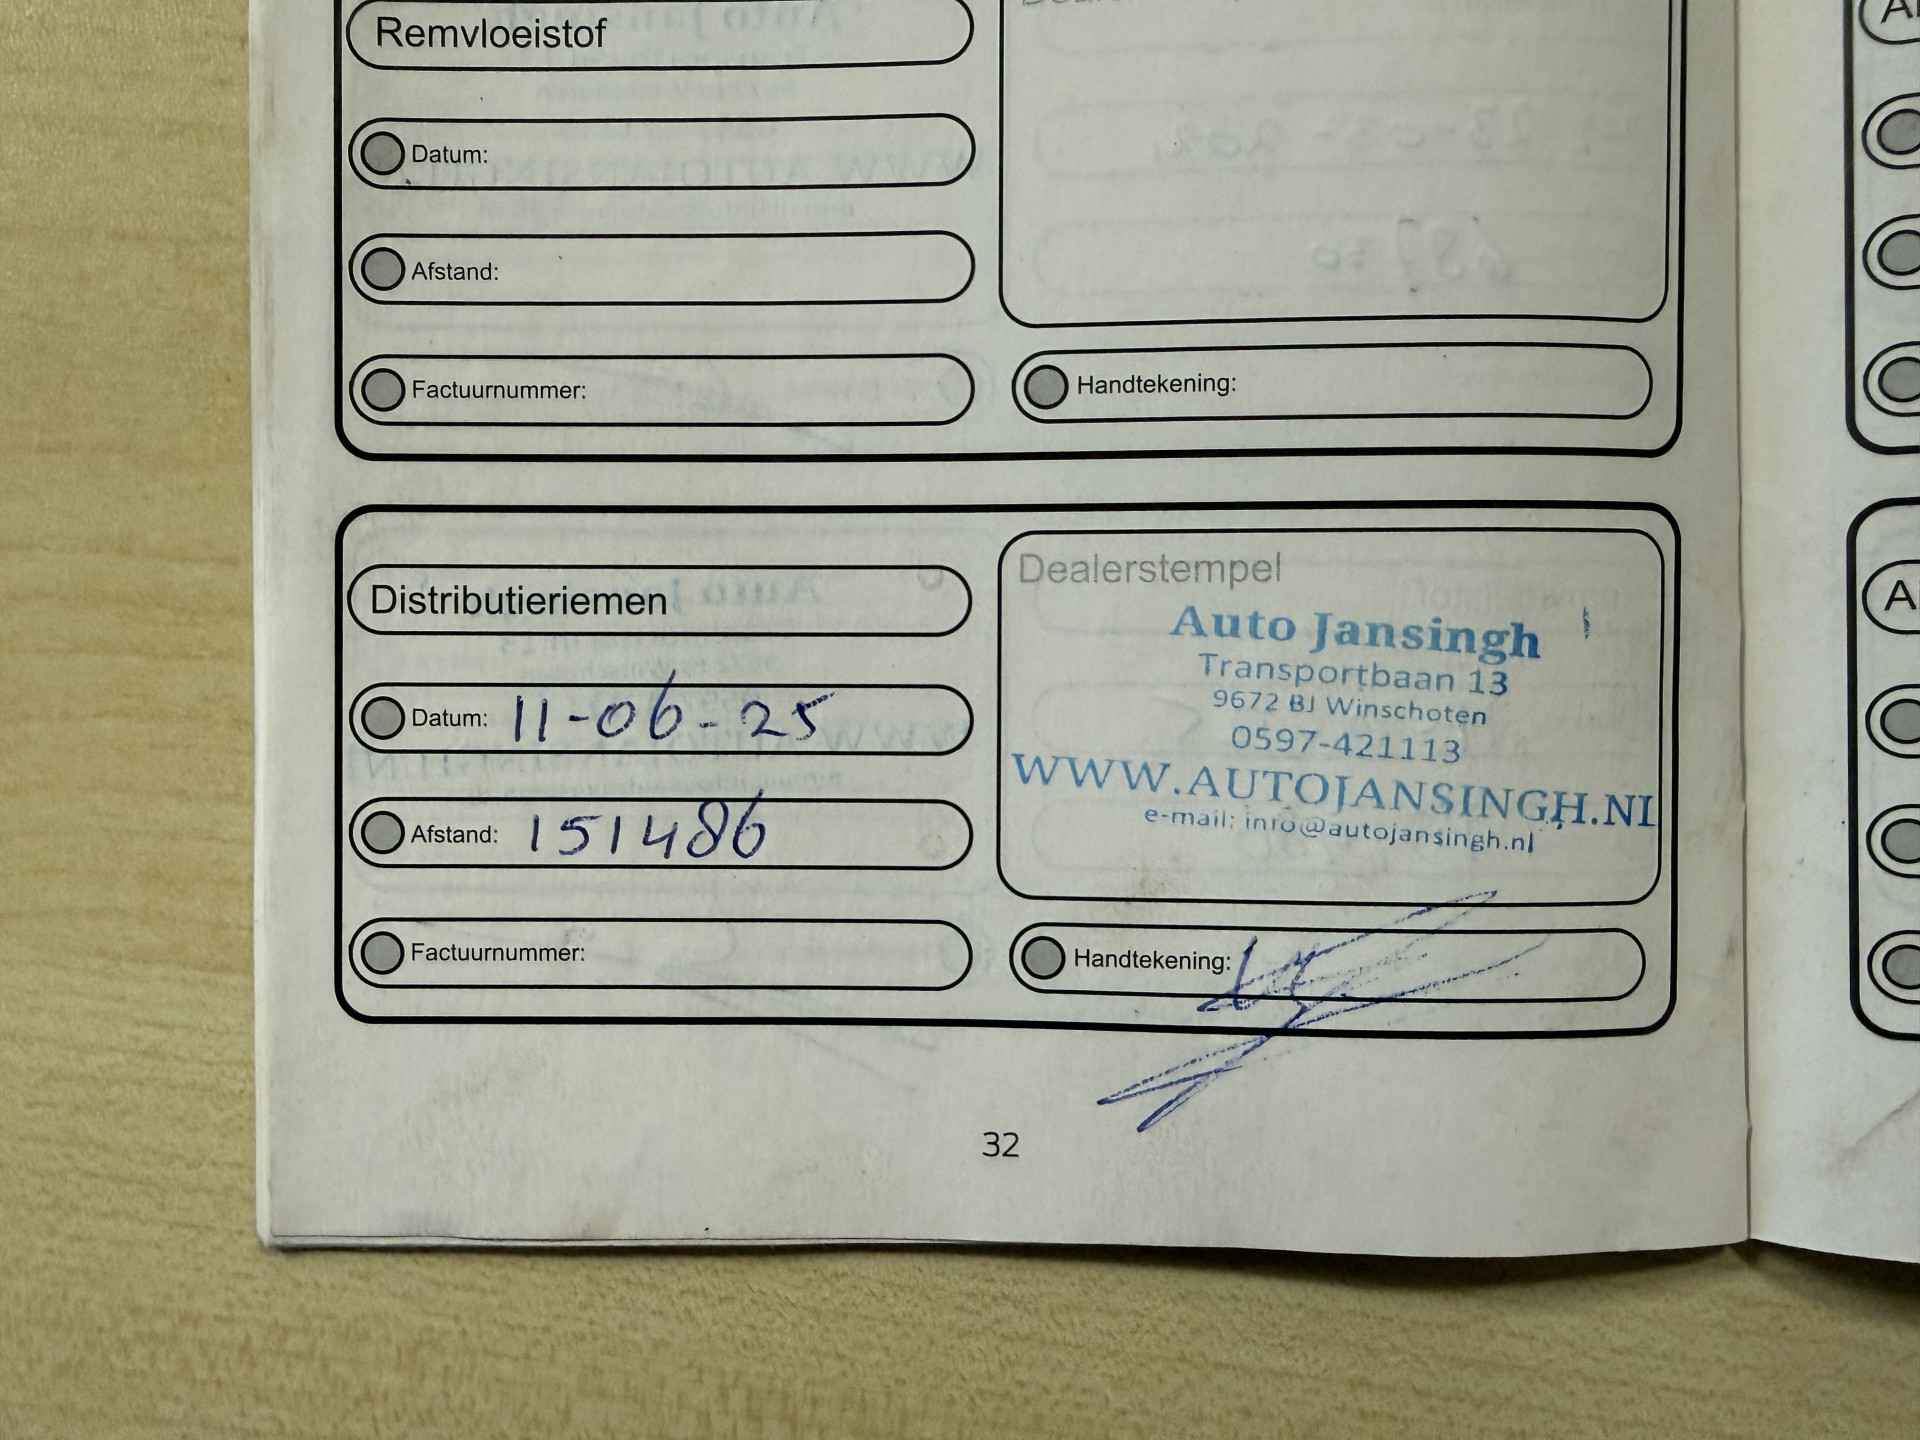 Remvloeistof
Datum:
Afstand:
Factuurnummer:
Handtekening:
Distributieriemen
Datum: 11-06-25
Afstand: 151486
Factuurnummer:
Dealerstempel
Auto Jansingh
Transportbaan 13
9672 BJ Winschoten
0597-421113
WWW.AUTOJANSINGH.NL
e-mail: info@autojansingh.nl
Handtekening:
32